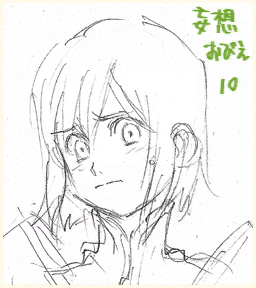 妄想
おぴえ
10